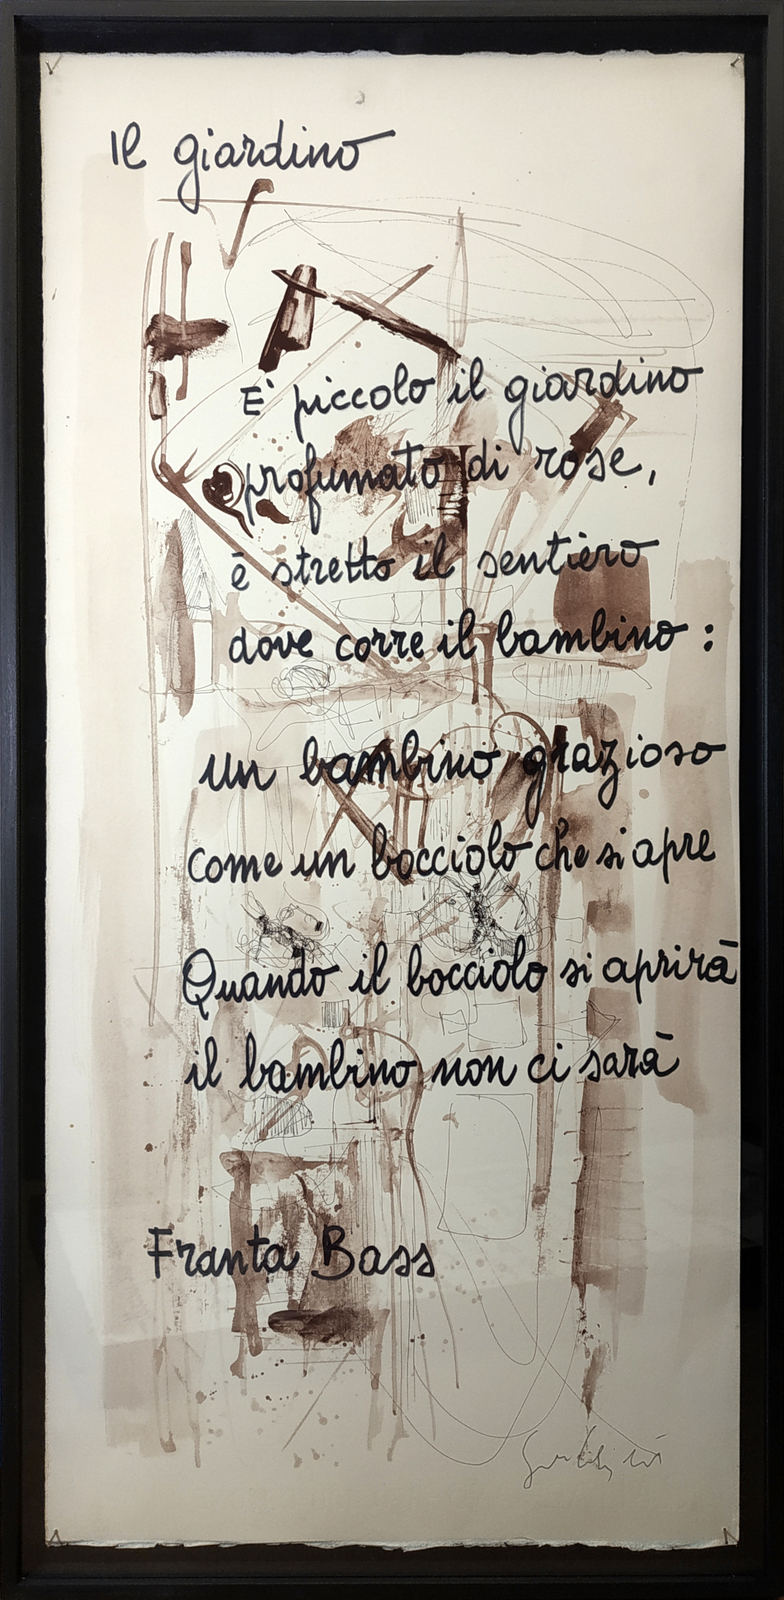 Il giardino
E' piccolo il giardino
profumato di rose,
è stretto il sentiero
dove corre il bambino :
un bambino grazioso
come un bocciolo che si apre
Quando il bocciolo si aprirà
il bambino non ci sarà
Franta Bass